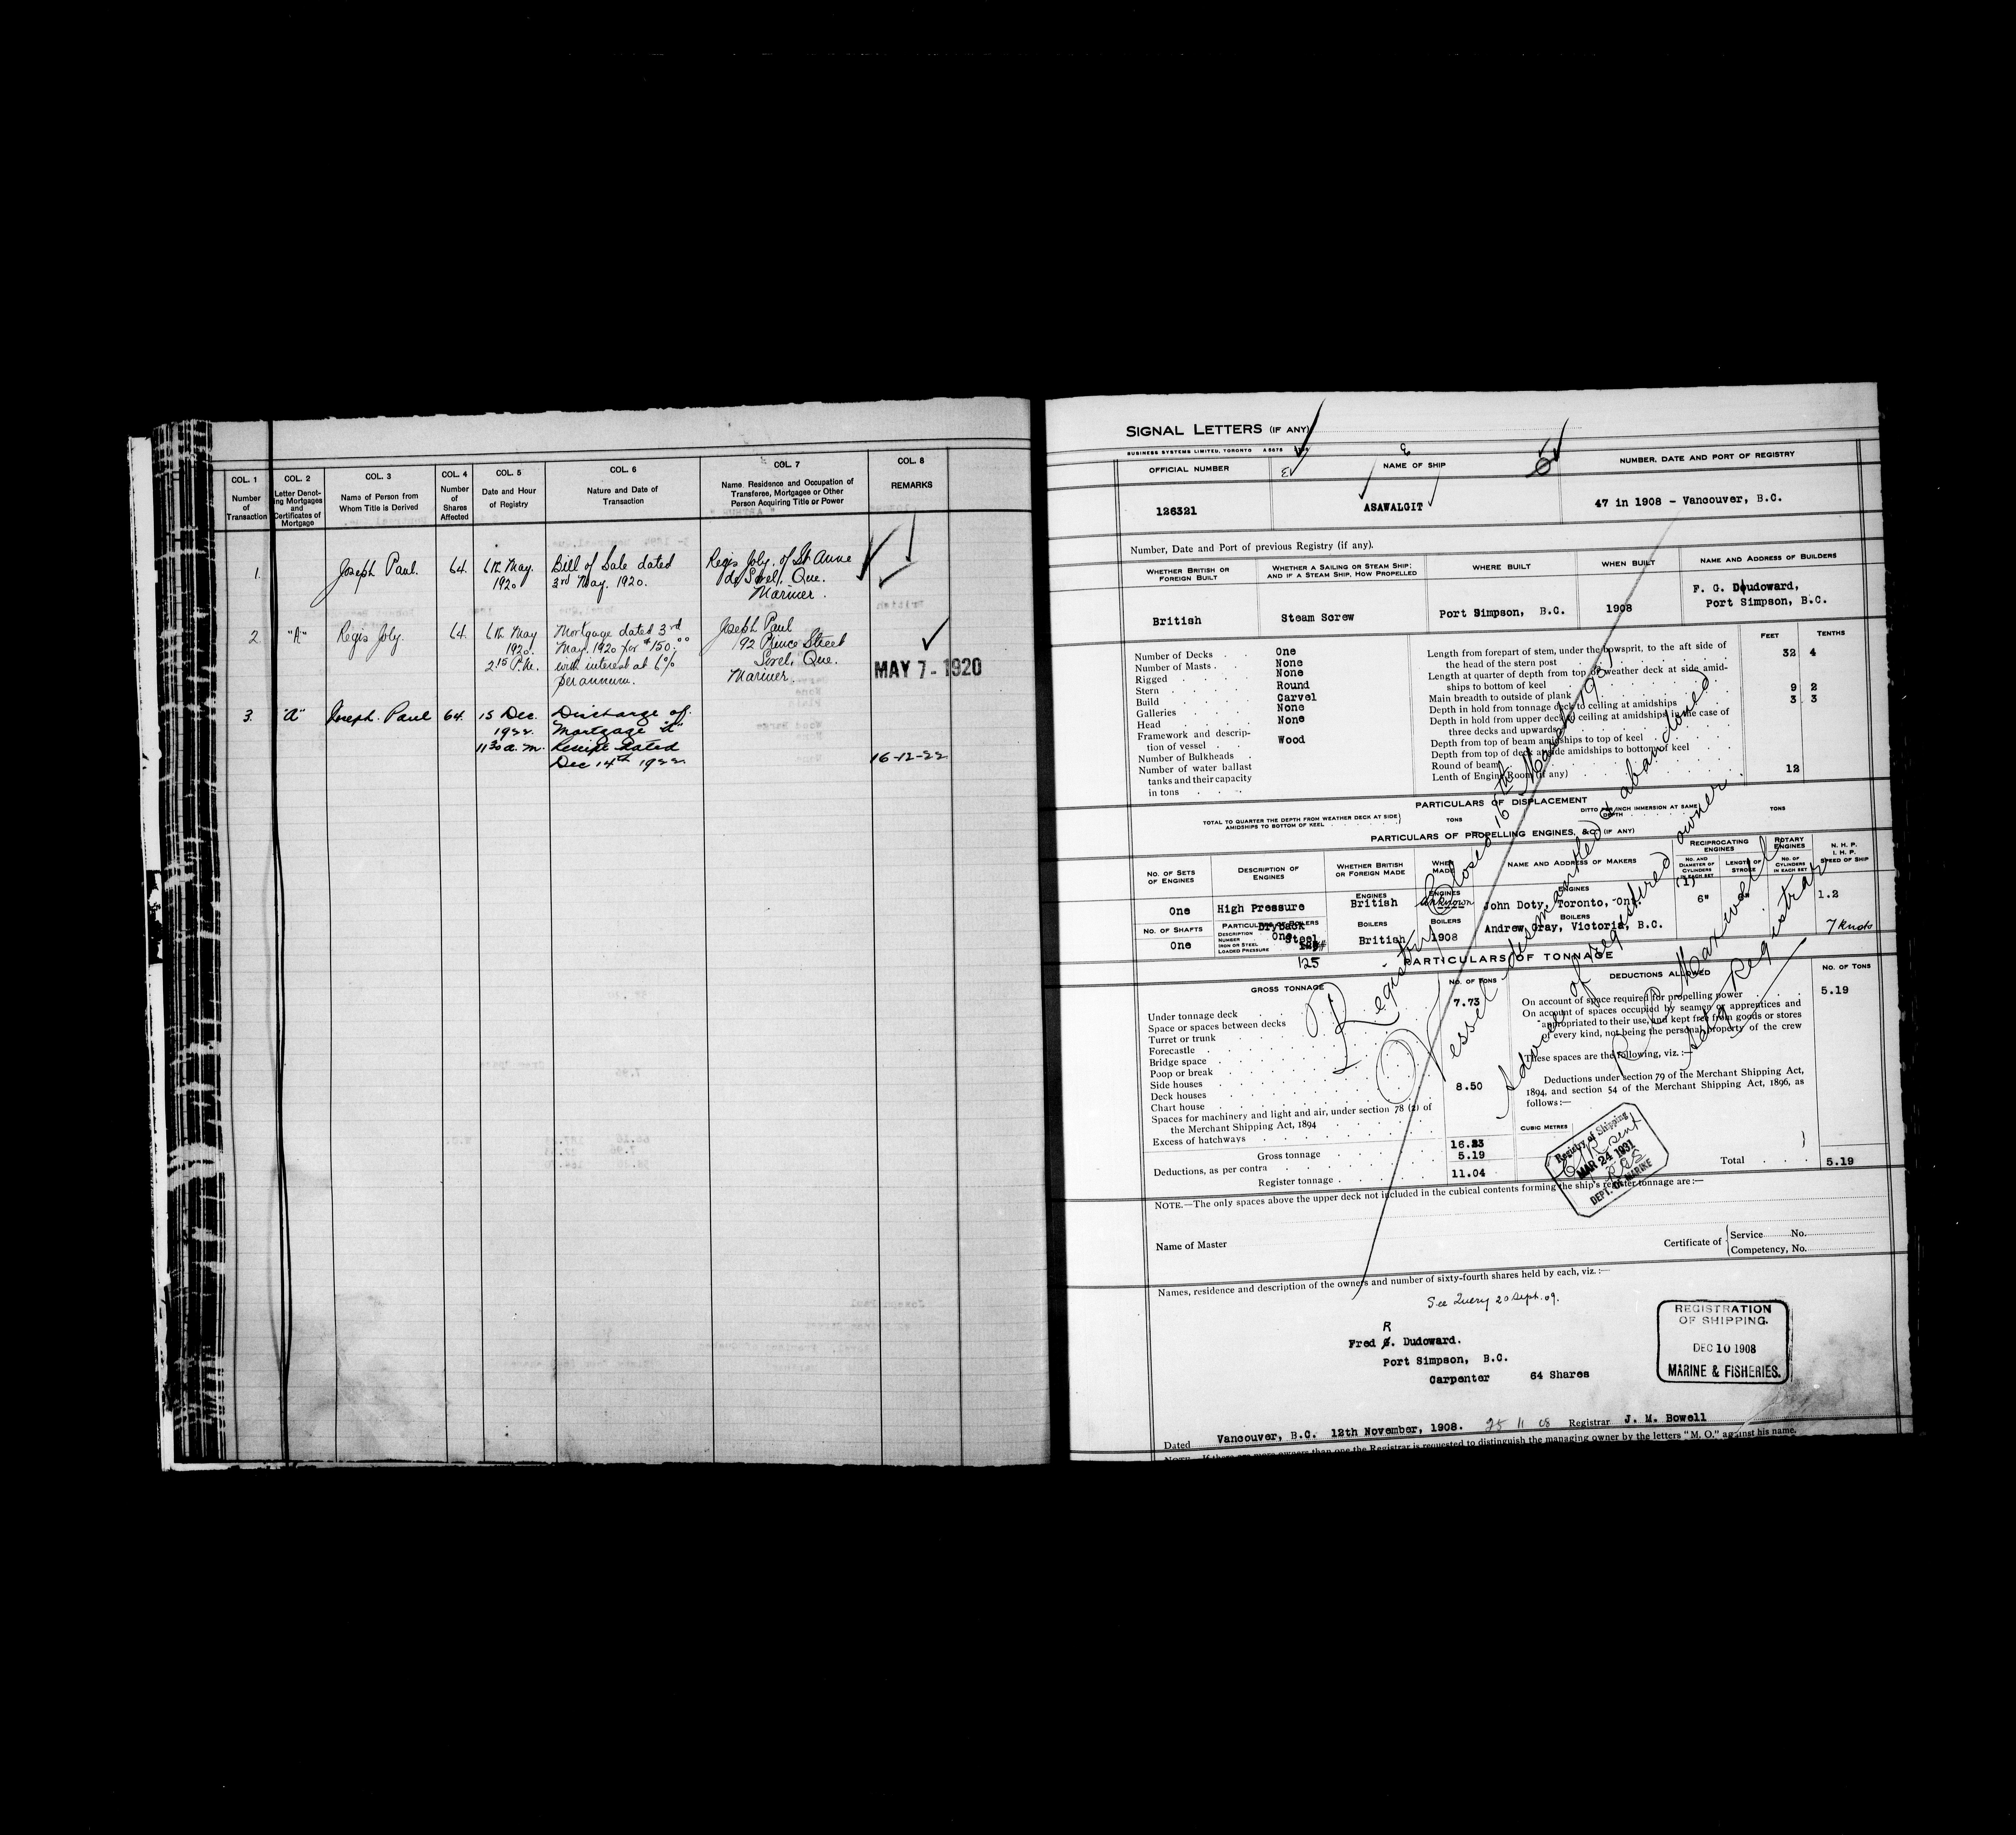 COL. 1
Number
of
Transaction
COL. 2
Letter Denot-
ing Mortgages
and
Certificates of
Mortgage
COL. 3
Name of Person from
Whom Title is Derived
COL. 4
Number
of
Shares
Affected
COL. 5
Date and Hour
of Registry
COL. 6
Nature and Date of
Transaction
COL. 7
Name, Residence and Occupation of
Transferee, Mortgagee or Other
Person Acquiring Title or Power
COL. 8
REMARKS
1.
Joseph Paul.
64.
6th May.
1920
Bill of Sale dated
3rd May. 1920.
Regis Joly. of St. Anne
de Sorel, Que.
Mariner.
2
"A"
Regis Joly.
64.
6th May
1920.
2.15 P.M.
Mortgage dated 3rd
May. 1920 for $150.00
with interest at 6%
per annum.
Joseph Paul
192 Prince Street
Sorel, Que.
Mariner.
MAY 7 - 1920
3.
"A"
Joseph. Paul
64.
15 Dec.
1922.
11.30 a.m.
Discharge of
Mortgage "A"
Receipt dated
Dec 14th 1922.
16-12-22
SIGNAL LETTERS (IF ANY)
BUSINESS SYSTEMS LIMITED, TORONTO
OFFICIAL NUMBER
NAME OF SHIP
NUMBER, DATE AND PORT OF REGISTRY
126321
ASAWALGIT
47 in 1908 - Vancouver, B.C.
Number, Date and Port of previous Registry (if any).
WHETHER BRITISH OR
FOREIGN BUILT
WHETHER A SAILING OR STEAM SHIP;
AND IF A STEAM SHIP, HOW PROPELLED
WHERE BUILT
WHEN BUILT
NAME AND ADDRESS OF BUILDERS
British
Steam Screw
Port Simpson, B.C.
1908
F. G. Doudoward,
Port Simpson, B.C.
FEET
TENTHS
Number of Decks . . One
Number of Masts . . None
Rigged . . . . . None
Stern . . . . . Round
Build . . . . . Carvel
Galleries . . . . None
Head . . . . . None
Framework and descrip-
tion of vessel . . Wood
Number of Bulkheads .
Number of water ballast
tanks and their capacity
in tons . . . .
Length from forepart of stem, under the bowsprit, to the aft side of
the head of the stern post 32 4
Length at quarter of depth from top of weather deck at side amid-
ships to bottom of keel
Main breadth to outside of plank 9 2
Depth in hold from tonnage deck to ceiling at amidships 3 3
Depth in hold from upper deck to ceiling at amidships, in the case of
three decks and upwards
Depth from top of beam amidships to top of keel
Depth from top of deck at side amidships to bottom of keel
Round of beam
Lenth of Engine Room (if any) 12
PARTICULARS OF DISPLACEMENT
TOTAL TO QUARTER THE DEPTH FROM WEATHER DECK AT SIDE
AMIDSHIPS TO BOTTOM OF KEEL
TONS
DITTO PER INCH IMMERSION AT SAME
DEPTH
TONS
PARTICULARS OF PROPELLING ENGINES, &C. (IF ANY)
NO. OF SETS
OF ENGINES
DESCRIPTION OF
ENGINES
WHETHER BRITISH
OR FOREIGN MADE
WHEN
MADE
NAME AND ADDRESS OF MAKERS
RECIPROCATING
ENGINES
NO. AND
DIAMETER OF
CYLINDERS
IN EACH SET
LENGTH OF
STROKE
ROTARY
ENGINES
NO. OF
CYLINDERS
IN EACH SET
N. H. P.
I. H. P.
SPEED OF SHIP
One
High Pressure
ENGINES
British
ENGINES
Unknown
ENGINES
John Doty, Toronto, Ont.
(1)
6"
1.2
NO. OF SHAFTS
One
PARTICULARS OF BOILERS
DESCRIPTION Dryback
NUMBER One
IRON OR STEEL Steel
LOADED PRESSURE
125
BOILERS
British
BOILERS
1908
BOILERS
Andrew Gray, Victoria, B.C.
7 Knots
PARTICULARS OF TONNAGE
GROSS TONNAGE
NO. OF TONS
DEDUCTIONS ALLOWED
NO. OF TONS
Under tonnage deck 7.73
Space or spaces between decks
Turret or trunk
Forecastle
Bridge space
Poop or break
Side houses
Deck houses 8.50
Chart house
Spaces for machinery and light and air, under section 78 (2) of
the Merchant Shipping Act, 1894
Excess of hatchways
Gross tonnage 16.23
Deductions, as per contra 5.19
Register tonnage 11.04
On account of space required for propelling power 5.19
On account of spaces occupied by seamen or apprentices and
appropriated to their use, and kept free from goods or stores
of every kind, not being the personal property of the crew
These spaces are the following, viz. :—
Deductions under section 79 of the Merchant Shipping Act,
1894, and section 54 of the Merchant Shipping Act, 1896, as
follows:—
CUBIC METRES
Total 5.19
Registry Closed 16th March 1931
Vessel dismantled & abandoned
Advice of registered owner.
Maxwell
Actg Registrar
Registry of Shipping
MAR 24 1931
DEPT. OF MARINE
NOTE.—The only spaces above the upper deck not included in the cubical contents forming the ship's register tonnage are :—
Name of Master
Certificate of
Service No.
Competency, No.
Names, residence and description of the owners and number of sixty-fourth shares held by each, viz. :—
See Query 20 Sept. 09.
R
Fred G. Dudoward.
Port Simpson, B.C.
Carpenter 64 Shares
REGISTRATION
OF SHIPPING.
DEC 10 1908
MARINE & FISHERIES.
Dated Vancouver, B.C. 12th November, 1908. 25 11 08 Registrar J. M. Bowell
NOTE—If there are more owners than one the Registrar is requested to distinguish the managing owner by the letters "M. O." against his name.